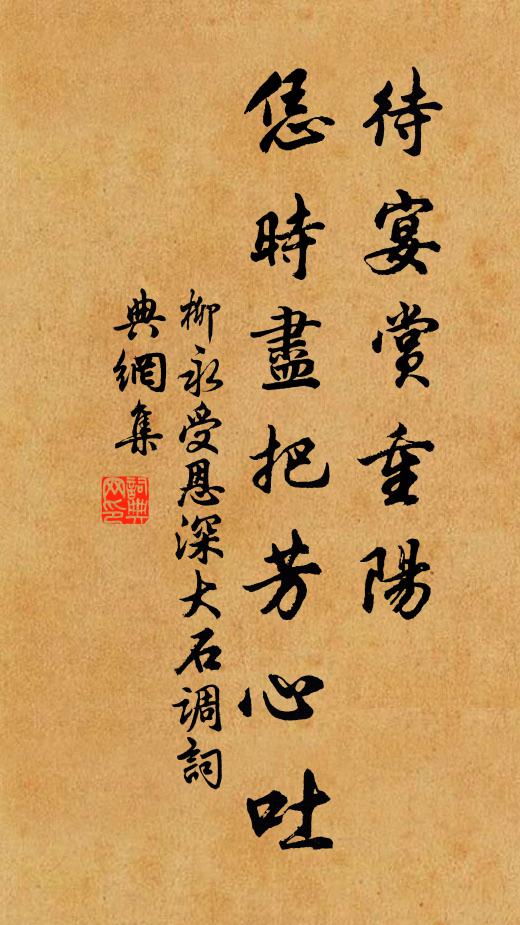 待宴賞重陽
恁時盡把芳心吐
柳永受恩深大石調詞
典網集
詞典
网印